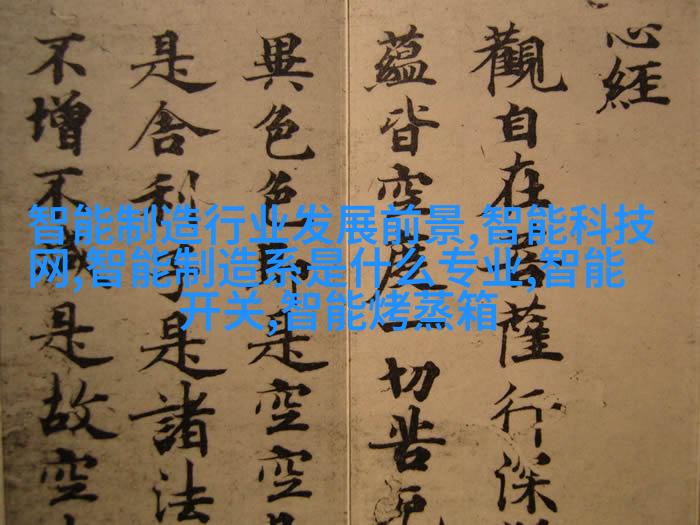 心經
觀自在菩薩行深
蘊皆空度一切苦厄
異色色即是空空
是舍利子是諸法
不增不是故空
智能制造行业发展前景,智能科技
网,智能制造系是什么专业,智能
开关,智能烤蒸箱